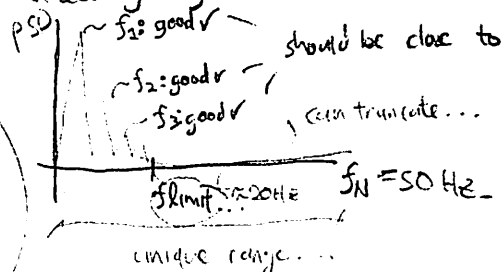 PSD
f₁: good✓
should be close to
f₂: good✓
f₃: good✓
can truncate...
flimit... ≈20Hz
f_N = 50 Hz
unique range....